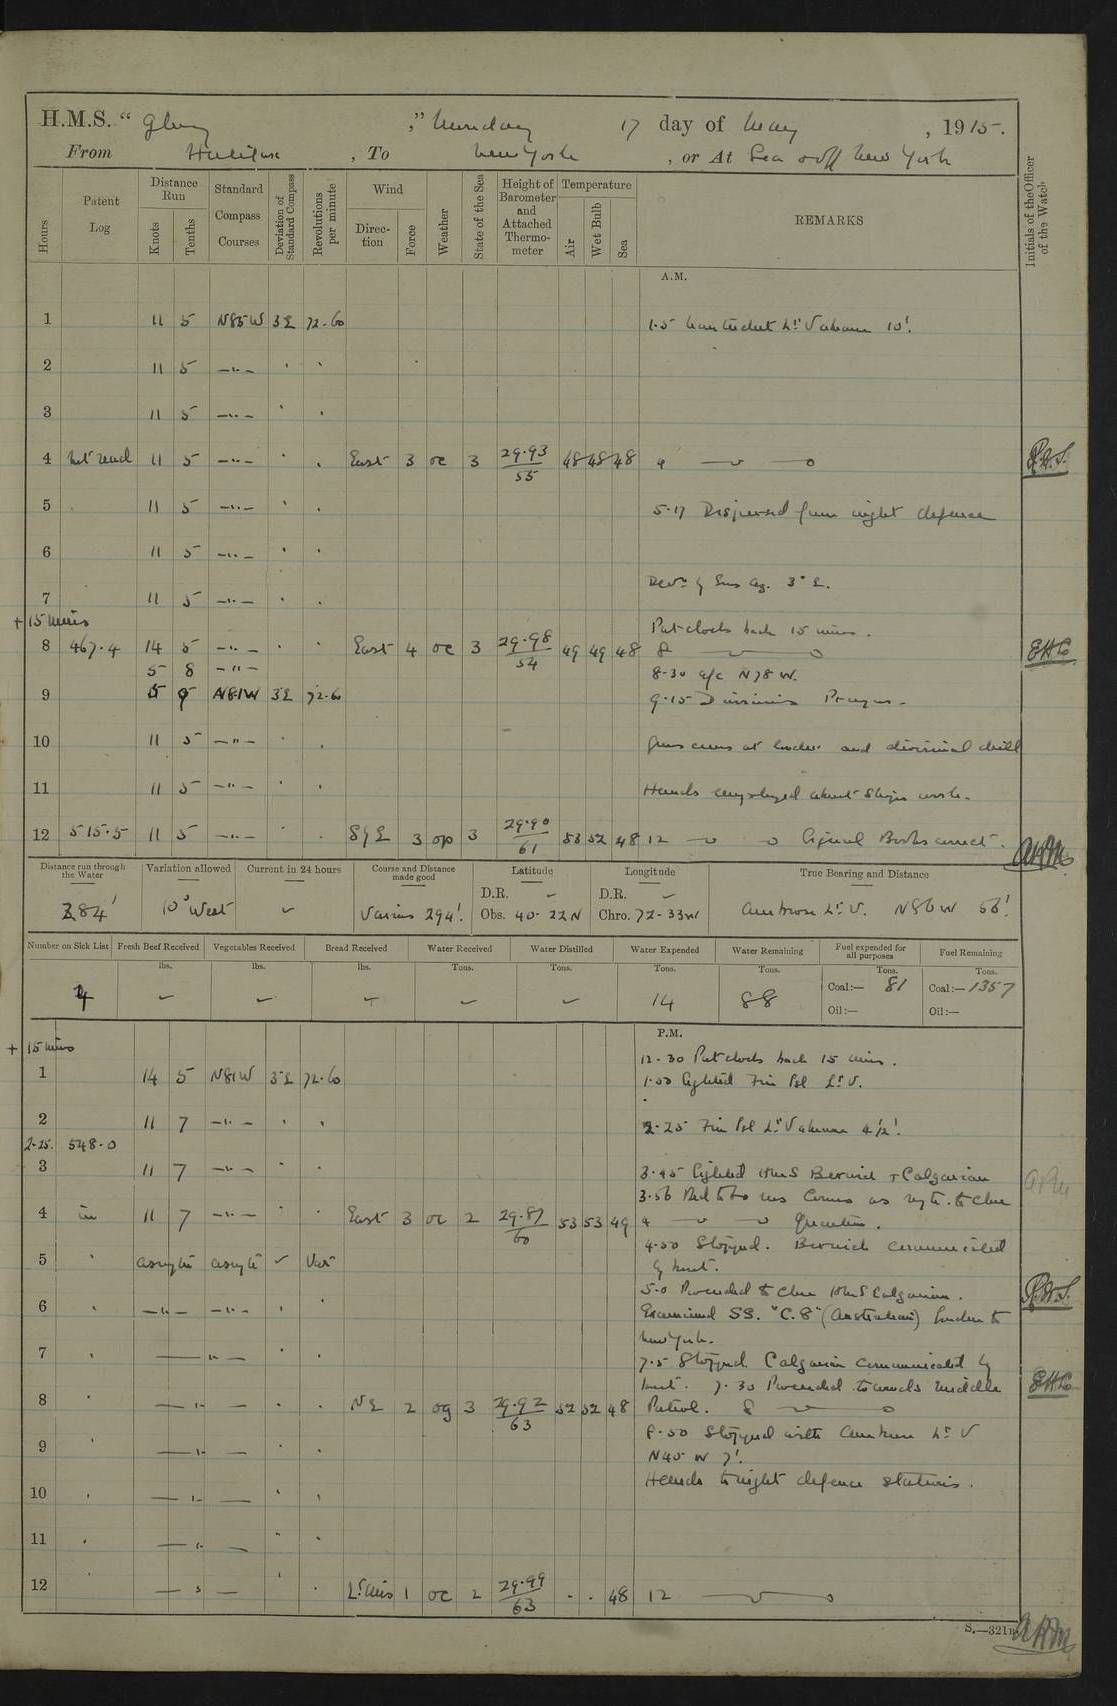 H.M.S. “ Glory ,” Monday 17 day of May , 1915.
From Halifax , To New York , or At Sea & off New York
Hours
Patent Log
Distance Run
Knots
Tenths
Standard Compass Courses
Deviation of Standard Compass
Revolutions per minute
Wind
Direction
Force
Weather
State of the Sea
Height of Barometer and Attached Thermometer
Temperature
Air
Wet Bulb
Sea
REMARKS
Initials of the Officer of the Watch
A.M.
1 11 5 N85W 3E 72.60 1.5 Nantucket Lt. V abeam 10'.
2 11 5 —"—
3 11 5 —"—
4 Not read 11 5 —"— East 3 oc 3 29.93/55 48 48 48 4
5 11 5 —"— 5.17 Dispersed from night defence
6 11 5 —"—
Devn. by Sun Az. 3° E.
7 11 5 —"—
+ 15 mins
Put clocks back 15 mins.
8 467.4 14 5 —"— East 4 oc 3 29.98/54 49 49 48 8
5 8 —"— 8.30 a/c N78W.
9 5 9 N81W 3E 72.60 9.15 Divisions Prayers.
10 11 5 —"— Guns crews at loader and divisional drill
11 11 5 —"— Hands employed about Ships work.
12 515.5 11 5 —"— SyE 3 op 3 29.90/61 53 52 48 12 Signal Books correct.
Distance run through the Water
284'
Variation allowed
10° West
Current in 24 hours
Course and Distance made good
Various 294'.
Latitude
D.R.
Obs. 40-22N
Longitude
D.R.
Chro. 72-33W
True Bearing and Distance
Ambrose Lt. V. N86W 56'.
Number on Sick List
4
Fresh Beef Received
lbs.
Vegetables Received
lbs.
Bread Received
lbs.
Water Received
Tons.
Water Distilled
Tons.
Water Expended
Tons.
14
Water Remaining
Tons.
88
Fuel expended for all purposes
Tons.
Coal:— 81
Oil:—
Fuel Remaining
Tons.
Coal:— 1357
Oil:—
P.M.
+ 15 mins
12.30 Put clocks back 15 mins.
1 14 5 N81W 3E 72.60 1.00 Sighted Fire Isl Lt. V.
2 11 7 —"— 2.25 Fire Isl Lt. V abeam 4½'.
2.25. 548.0
3 11 7 —"— 3.45 Sighted HMS Berwick & Calgarian
3.56
4 in 11 7 —"— East 3 oc 2 29.87/60 53 53 49 4
4.50 Stopped. Berwick communicated
5 as req'te as req'te Var by boat.
5.0 Proceeded to close HMS Calgarian.
6 —"— —"— Examined SS. "C.8" (Australian) London to
New York.
7 —"— 7.5 Stopped Calgarian communicated by
boat. 7.30 Proceeded towards middle
8 —"— NE 2 og 3 29.92/63 52 52 48 Patrol. 8
8.50 Stopped with Ambrose Lt. V
9 —"— N45W 7'.
Hands to night defence stations.
10 —"—
11 —"—
12 —"— Lt. airs 1 oc 2 29.99/63 48 12
S.—321